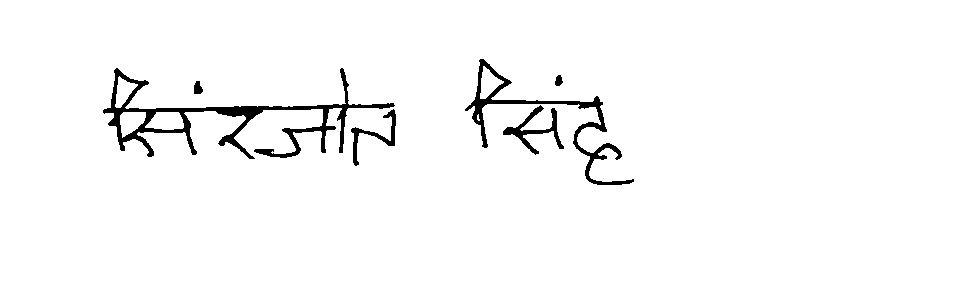 सिंरजोत सिंह